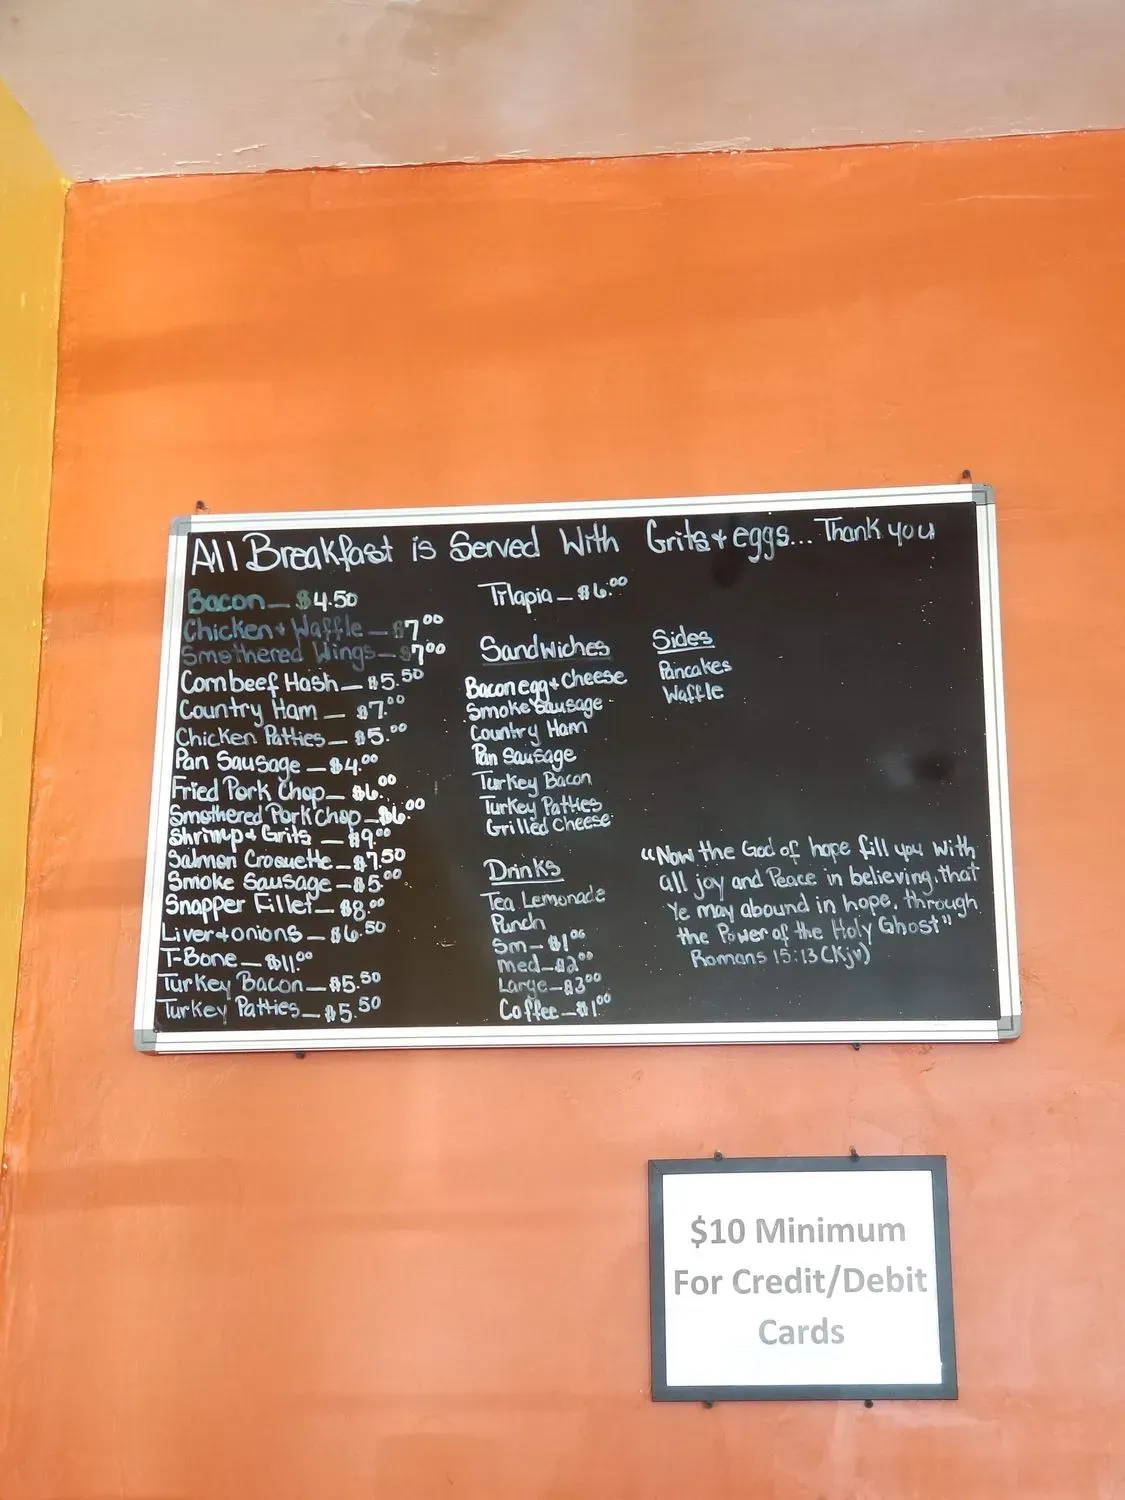 All Breakfast is Served With Grits + eggs... Thank you
Bacon — $4.50
Chicken + Waffle — $7.00
Smothered Wings — $7.00
Cornbeef Hash — $5.50
Country Ham — $7.00
Chicken Patties — $5.00
Pan Sausage — $4.00
Fried Pork Chop — $6.00
Smothered Pork Chop — $6.00
Shrimp + Grits — $9.00
Salmon Croquette — $7.50
Smoke Sausage — $5.00
Snapper Fillet — $8.00
Liver + onions — $6.50
T-Bone — $11.00
Turkey Bacon — $5.50
Turkey Patties — $5.50
Trlapia — $6.00
Sandwiches
Bacon egg + cheese
Smoke Sausage
Country Ham
Pan Sausage
Turkey Bacon
Turkey Patties
Grilled Cheese
Drinks
Tea Lemonade
Punch
Sm — $1.00
med — $2.00
Large — $3.00
Coffee — $1.00
Sides
Pancakes
Waffle
"Now the God of hope fill you with
all joy and Peace in believing, that
Ye may abound in hope, through
the Power of the Holy Ghost"
Romans 15:13 (Kjv)
$10 Minimum
For Credit/Debit
Cards